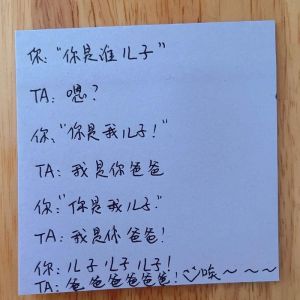 你:“你是谁儿子”
TA:嗯?
你:“你是我儿子!”
TA:我是你爸爸
你:“你是我儿子.”
TA:我是你爸爸!
你:儿子儿子儿子!
TA:爸爸爸爸爸爸!唉~~~